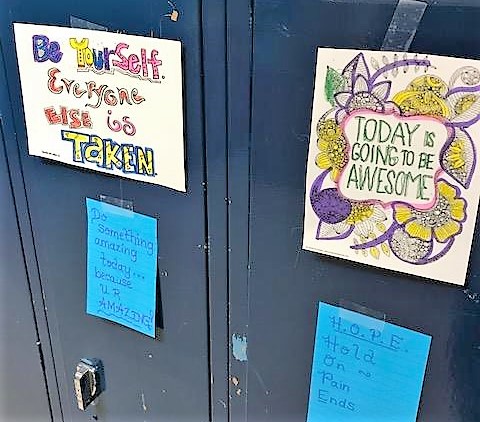 Be Yourself.
Everyone
ELSE is
TAKEN
Do
something
amazing
today...
because
U R
AMAZING!
TODAY IS
GOING TO BE
AWESOME
H.O.P.E.
Hold
On ~
Pain
Ends